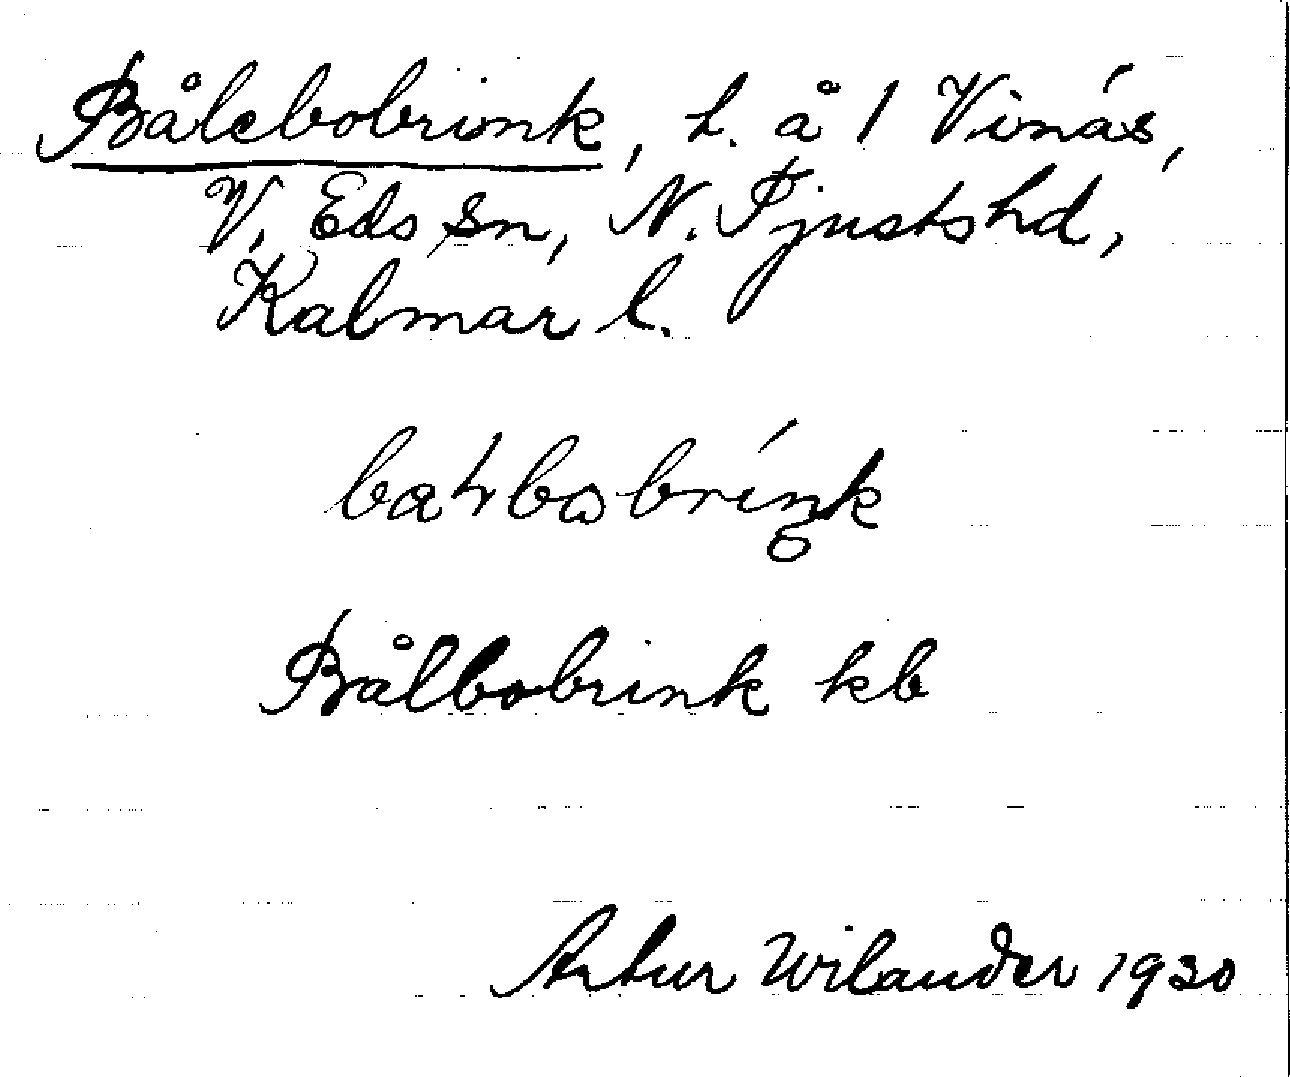 Bålebobrink, h. å 1 Vinás,
V. Eds sn, N. Tjustshd,
Kalmar l.
Bålbobrink kb
Artur Wilander 1930